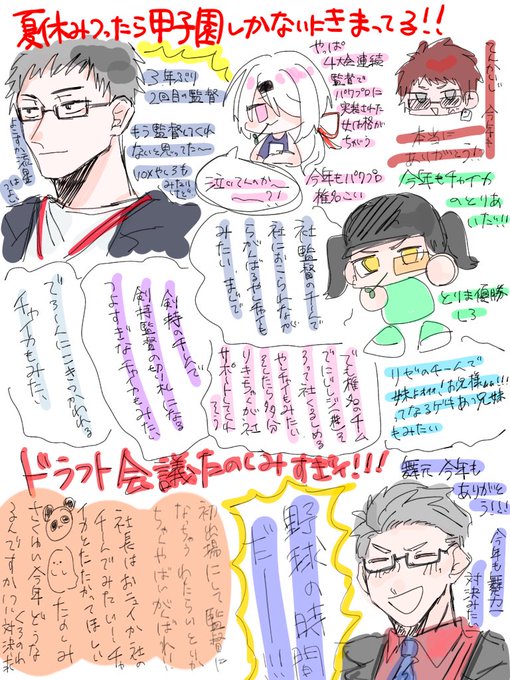 夏休みつったら甲子園しかないにきまってる!!
3年ぶり
2回目の監督
もう監督してくれ
ないと思ってた〜
やっぱ
4大会連続
監督で
パワプロに
実装された
女は格が
ちがう
泣いてんのか〜
〜?!
今年もパワプロ
椎名こい
今年も
本当に
ありがとう!!
今年もチャイカ
のとりあ
いだ!!
とりま優勝
しろ
社監督のチームで
社におこられなが
らがんばるやしきも
みたい
剣持のチームで
剣持監督の切り札になる
つよすぎなチャイカもみたい
でろーんにこきつかわれる
チャイカもみたい
でも椎名のチーム
でにじレジ巻って
るって社くるしめる
やしきチャイもみたい
そしたら多分
りきもちゃが社
サポートしてくれ
そう
リゼのチームで
妹よぉぉぉ!お兄様ぁぁ!!!
ってなるゲキあつ兄妹
もみたい
ドラフト会議たのしみすぎィ!!!
舞元 今年も
ありがと
う!!
今年も舞元
対決みたい
野球の時間
だーーー!!!
初出場にして監督に
なっちゃうわたらいとりか
ちゃでやばいがばれい
社長はおニィか社の
チームでみたい!チャ
イカとたたかってほしい
たのしみ
さくゆい今年どうな